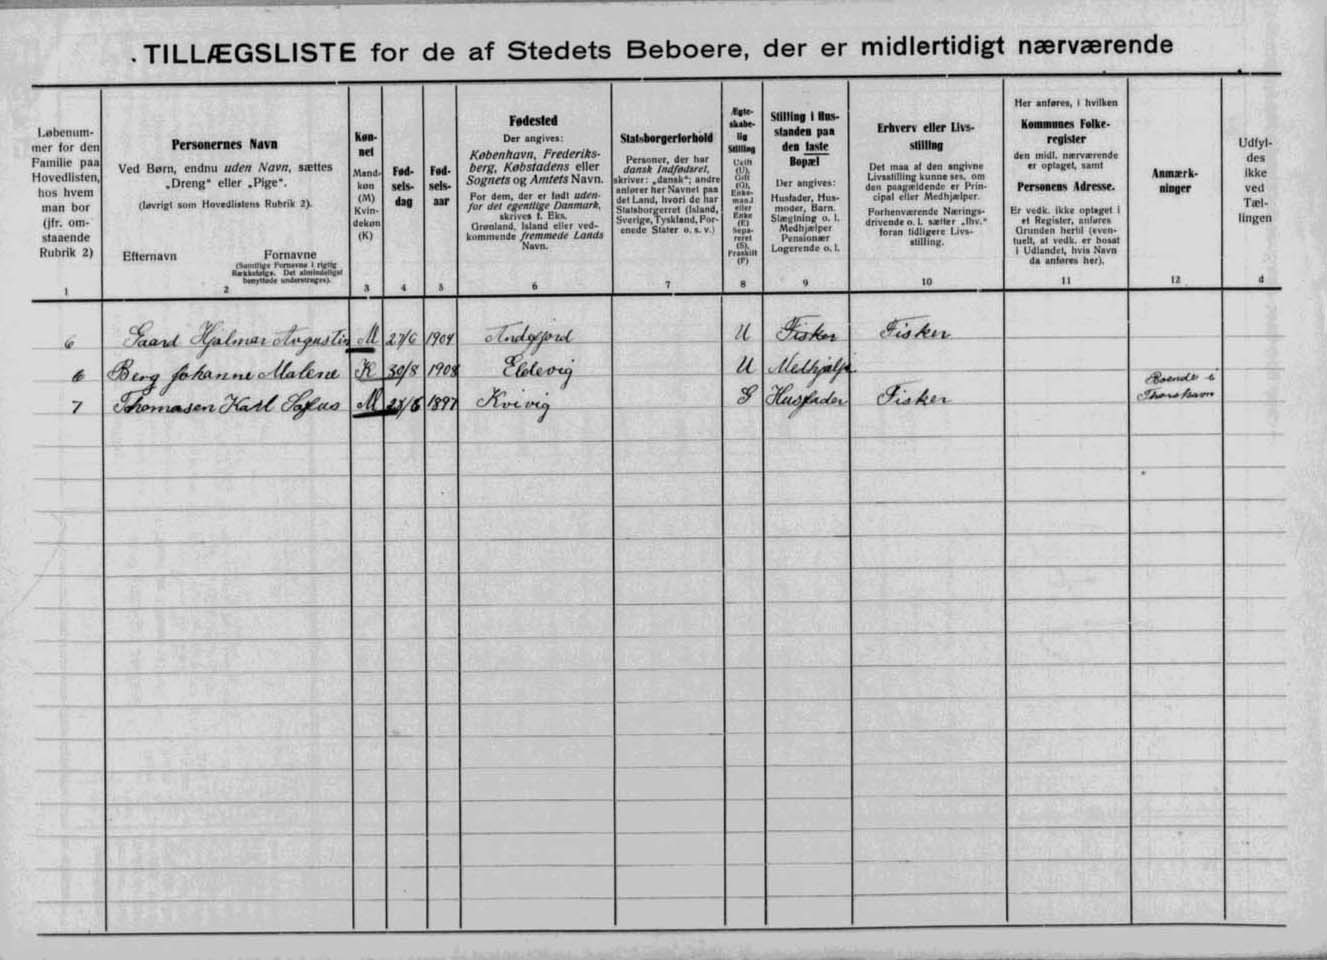 . TILLÆGSLISTE for de af Stedets Beboere, der er midlertidigt nærværende
Løbenum-
mer for den
Familie paa
Hovedlisten,
hos hvem
man bor
(jfr. om-
staaende
Rubrik 2)
1
Personernes Navn
Ved Børn, endnu uden Navn, sættes
„Dreng" eller „Pige".
(Iøvrigt som Hovedlistens Rubrik 2).
Efternavn
Fornavne
(Samtlige Fornavne i rigtig
Rækkefølge. Det almindeligst
benyttede understreges).
2
Køn-
net
Mand-
køn
(M)
Kvin-
dekøn
(K)
3
Fød-
sels-
dag
4
Fød-
sels-
aar
5
Fødested
Der angives:
København, Frederiks-
berg, Købstadens eller
Sognets og Amtets Navn.
For dem, der er født uden-
for det egentlige Danmark,
skrives f. Eks.
Grønland, Island eller ved-
kommende fremmede Lands
Navn.
6
Statsborgerforhold
Personer, der har
dansk Indfødsret,
skriver: „dansk"; andre
anfører her Navnet paa
det Land, hvori de har
Statsborgerret (Island,
Sverige, Tyskland, For-
enede Stater o. s. v.)
7
Ægte-
skabe-
lig
Stilling
Ugift
(U),
Gift
(G),
Enke-
mand
eller
Enke
(E)
Sepa-
reret
(S),
Fraskilt
(F)
8
Stilling i Hus-
standen paa
den faste
Bopæl
Der angives:
Husfader, Hus-
moder, Barn,
Slægtning o. l.
Medhjælper
Pensionær
Logerende o. l.
9
Erhverv eller Livs-
stilling
Det maa af den angivne
Livsstilling kunne ses, om
den paagældende er Prin-
cipal eller Medhjælper.
Forhenværende Nærings-
drivende o. l. sætter „fhv."
foran tidligere Livs-
stilling.
10
Her anføres, i hvilken
Kommunes Folke-
register
den midl. nærværende
er optaget, samt
Personens Adresse.
Er vedk. ikke optaget i
et Register, anføres
Grunden hertil (even-
tuelt, at vedk. er bosat
i Udlandet, hvis Navn
da anføres her).
11
Anmærk-
ninger
12
Udfyl-
des
ikke
ved
Tæl-
lingen
d
6 Gaard Hjalmar Augustin M 27/6 1904 Andefjord U Fisker Fisker
6 Berg Johanne Malene K 30/8 1908 Eldevig U Medhjælp.
7 Thomasen Karl M 1897 Kvivig G Husfader Fisker Boende i
Thorshavn